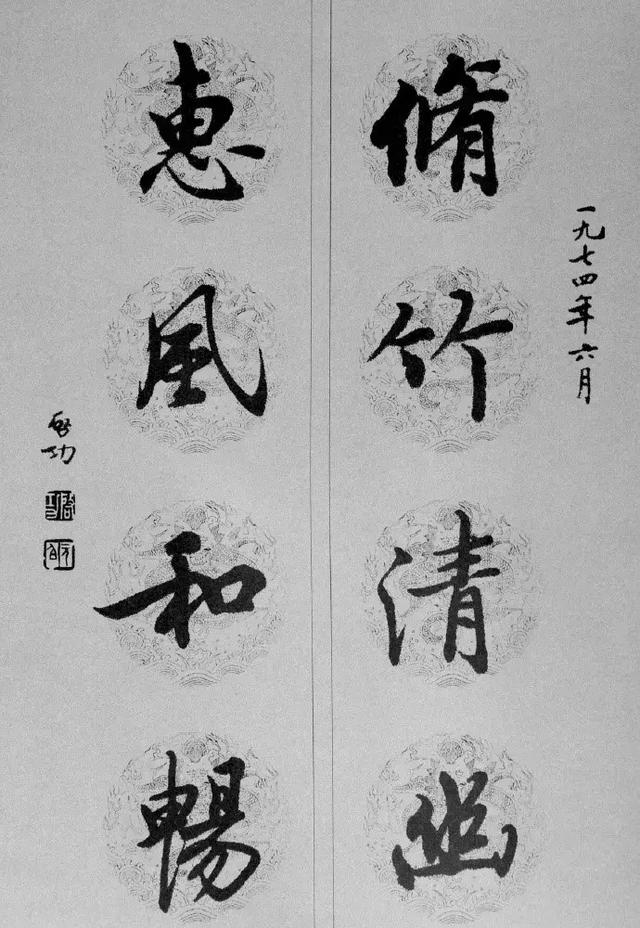 一九七四年六月
脩竹清幽
惠風和暢
啓功